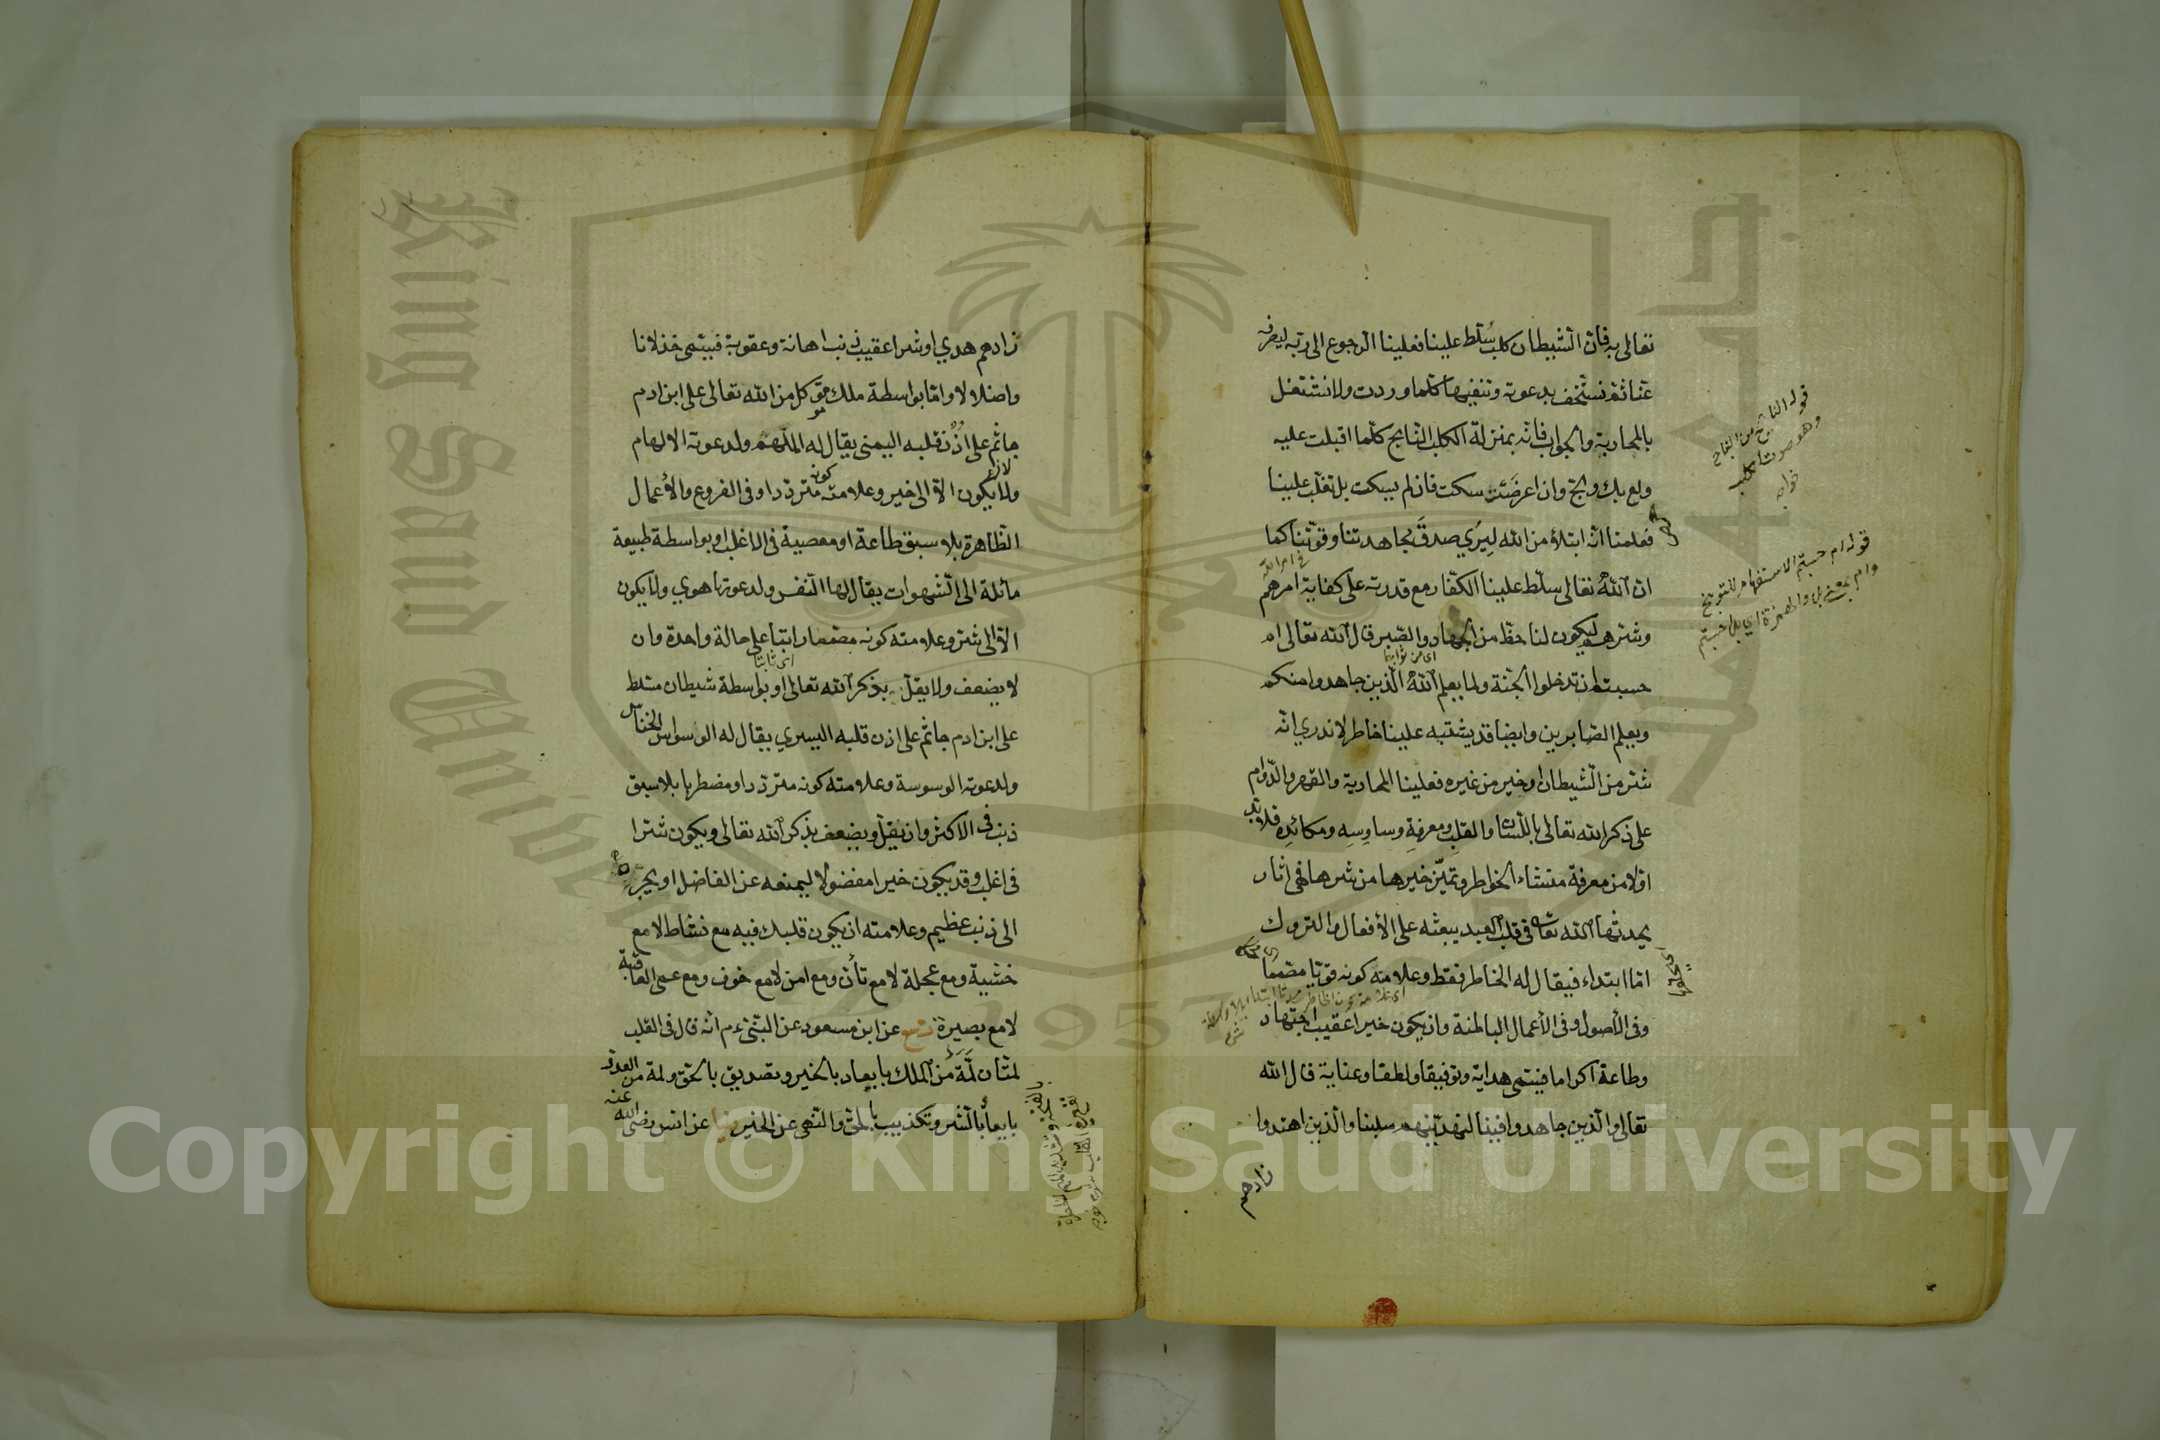 تعالى به فان الشيطان كلب سُلّط علينا فعلينا الرجوع الى ربه ليصرفه
عنا ثم نستخف بدعوته وننفيها كلما وردت ولا نشتغل
بالمحاربة والجواب فانه بمنزلة الكلب النابح كلما اقبلت عليه
ولع بك ولج وان اعرضت سكت فان لم يسكت بل تغلب علينا
فعلمنا انه ابتلاء من الله ليرى صدق مجاهدتنا وقوتنا كما
ان الله تعالى سلّط علينا الكفار مع قدرته على كفاية امرهم
وشرهم ليكون لنا حظ من الجهاد والصبر قال الله تعالى ام
حسبتم ان تدخلوا الجنة ولما يعلم الله الذين جاهدوا منكم
ويعلم الصابرين وايضا قد يشتبه علينا خاطر لا ندري انه
شر من الشيطان او خير من غيره فعلينا المحاربة والقهر والدوام
على ذكر الله تعالى باللسان والقلب ومعرفة وساوسه ومكائده فلا بد
اولا من معرفة منشاء الخواطر وتميز خيرها من شرها فهي اثار
يحدثها الله تعالى في قلب العبد يبعثه على الأفعال والتروك
اما ابتداء فيقال له الخاطر فقط وعلامته كونه قويا مصمما
وفي الأصول وفي الأعمال الباطنة وان يكون خيرا عقيب اجتهاد
وطاعة اكراما فيسمى هداية وتوفيقا ولطفا وعناية قال الله
تعالى والذين جاهدوا فينا لنهدينهم سبلنا والذين اهتدوا
زادهم
قوله النابح من النباح
وهو صوت الكلب
قوله ام حسبتم الاستفهام للتوبيخ
وام بمعنى بل والهمزة اي بل احسبتم
زادهم هدي او شرا عقيب ذنب اهانة وعقوبة فيسمى خذلانا
واضلالا واما بواسطة ملك موكل من الله تعالى على ابن ادم
جاثم على اذن قلبه اليمنى يقال له الملهم ولدعوته الالهام
ولا يكون الا الى خير وعلامته كونه مترددا وفي الفروع والأعمال
الظاهرة بلا سبق طاعة او معصية في الاغلب او بواسطة طبيعة
مائلة الى الشهوات يقال لها النفس ولدعوتها هوي ولا يكون
الا الى شر وعلامته كونه مصمما راتبا على حالة واحدة وان
لا يضعف ولا يقل بذكر الله تعالى او بواسطة شيطان مسلط
على ابن ادم جاثم على اذن قلبه اليسري يقال له الوسواس الخناس
ولدعوته الوسوسة وعلامته كونه مترددا ومضطربا بلا سبق
ذنب في الاكثر وان يقل ويضعف بذكر الله تعالى ويكون شرا
في اغلب وقد يكون خيرا مفضولا ليمنعه عن الفاضل او يجره
الى ذنب عظيم وعلامته ان يكون قلبك فيه مع نشاط لا مع
خشية ومع عجلة لا مع تأن ومع امن لا مع خوف ومع عمى العاقبة
لا مع بصيرة عن ابن مسعود عن النبي ءم انه قال في القلب
لمتان لمة من الملك بايعاد بالخير وتصديق بالحق ولمة من العدو
بايعاد بالشر وتكذيب بالحق والنهى عن الخير عن انس رضى الله عنه